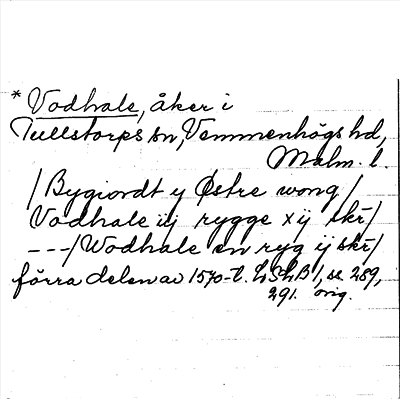 * Vodhale, åker i
Tullstorps sn, Vemmenhögs hd,
Malm. l.
/ Bygiordt y Østre wong /
Vodhale iij rygge x ij skr /
--- / Wodhale en ryg ij skr /
förra delen av 1570-t. LSLB 1, se 289,
291. orig.